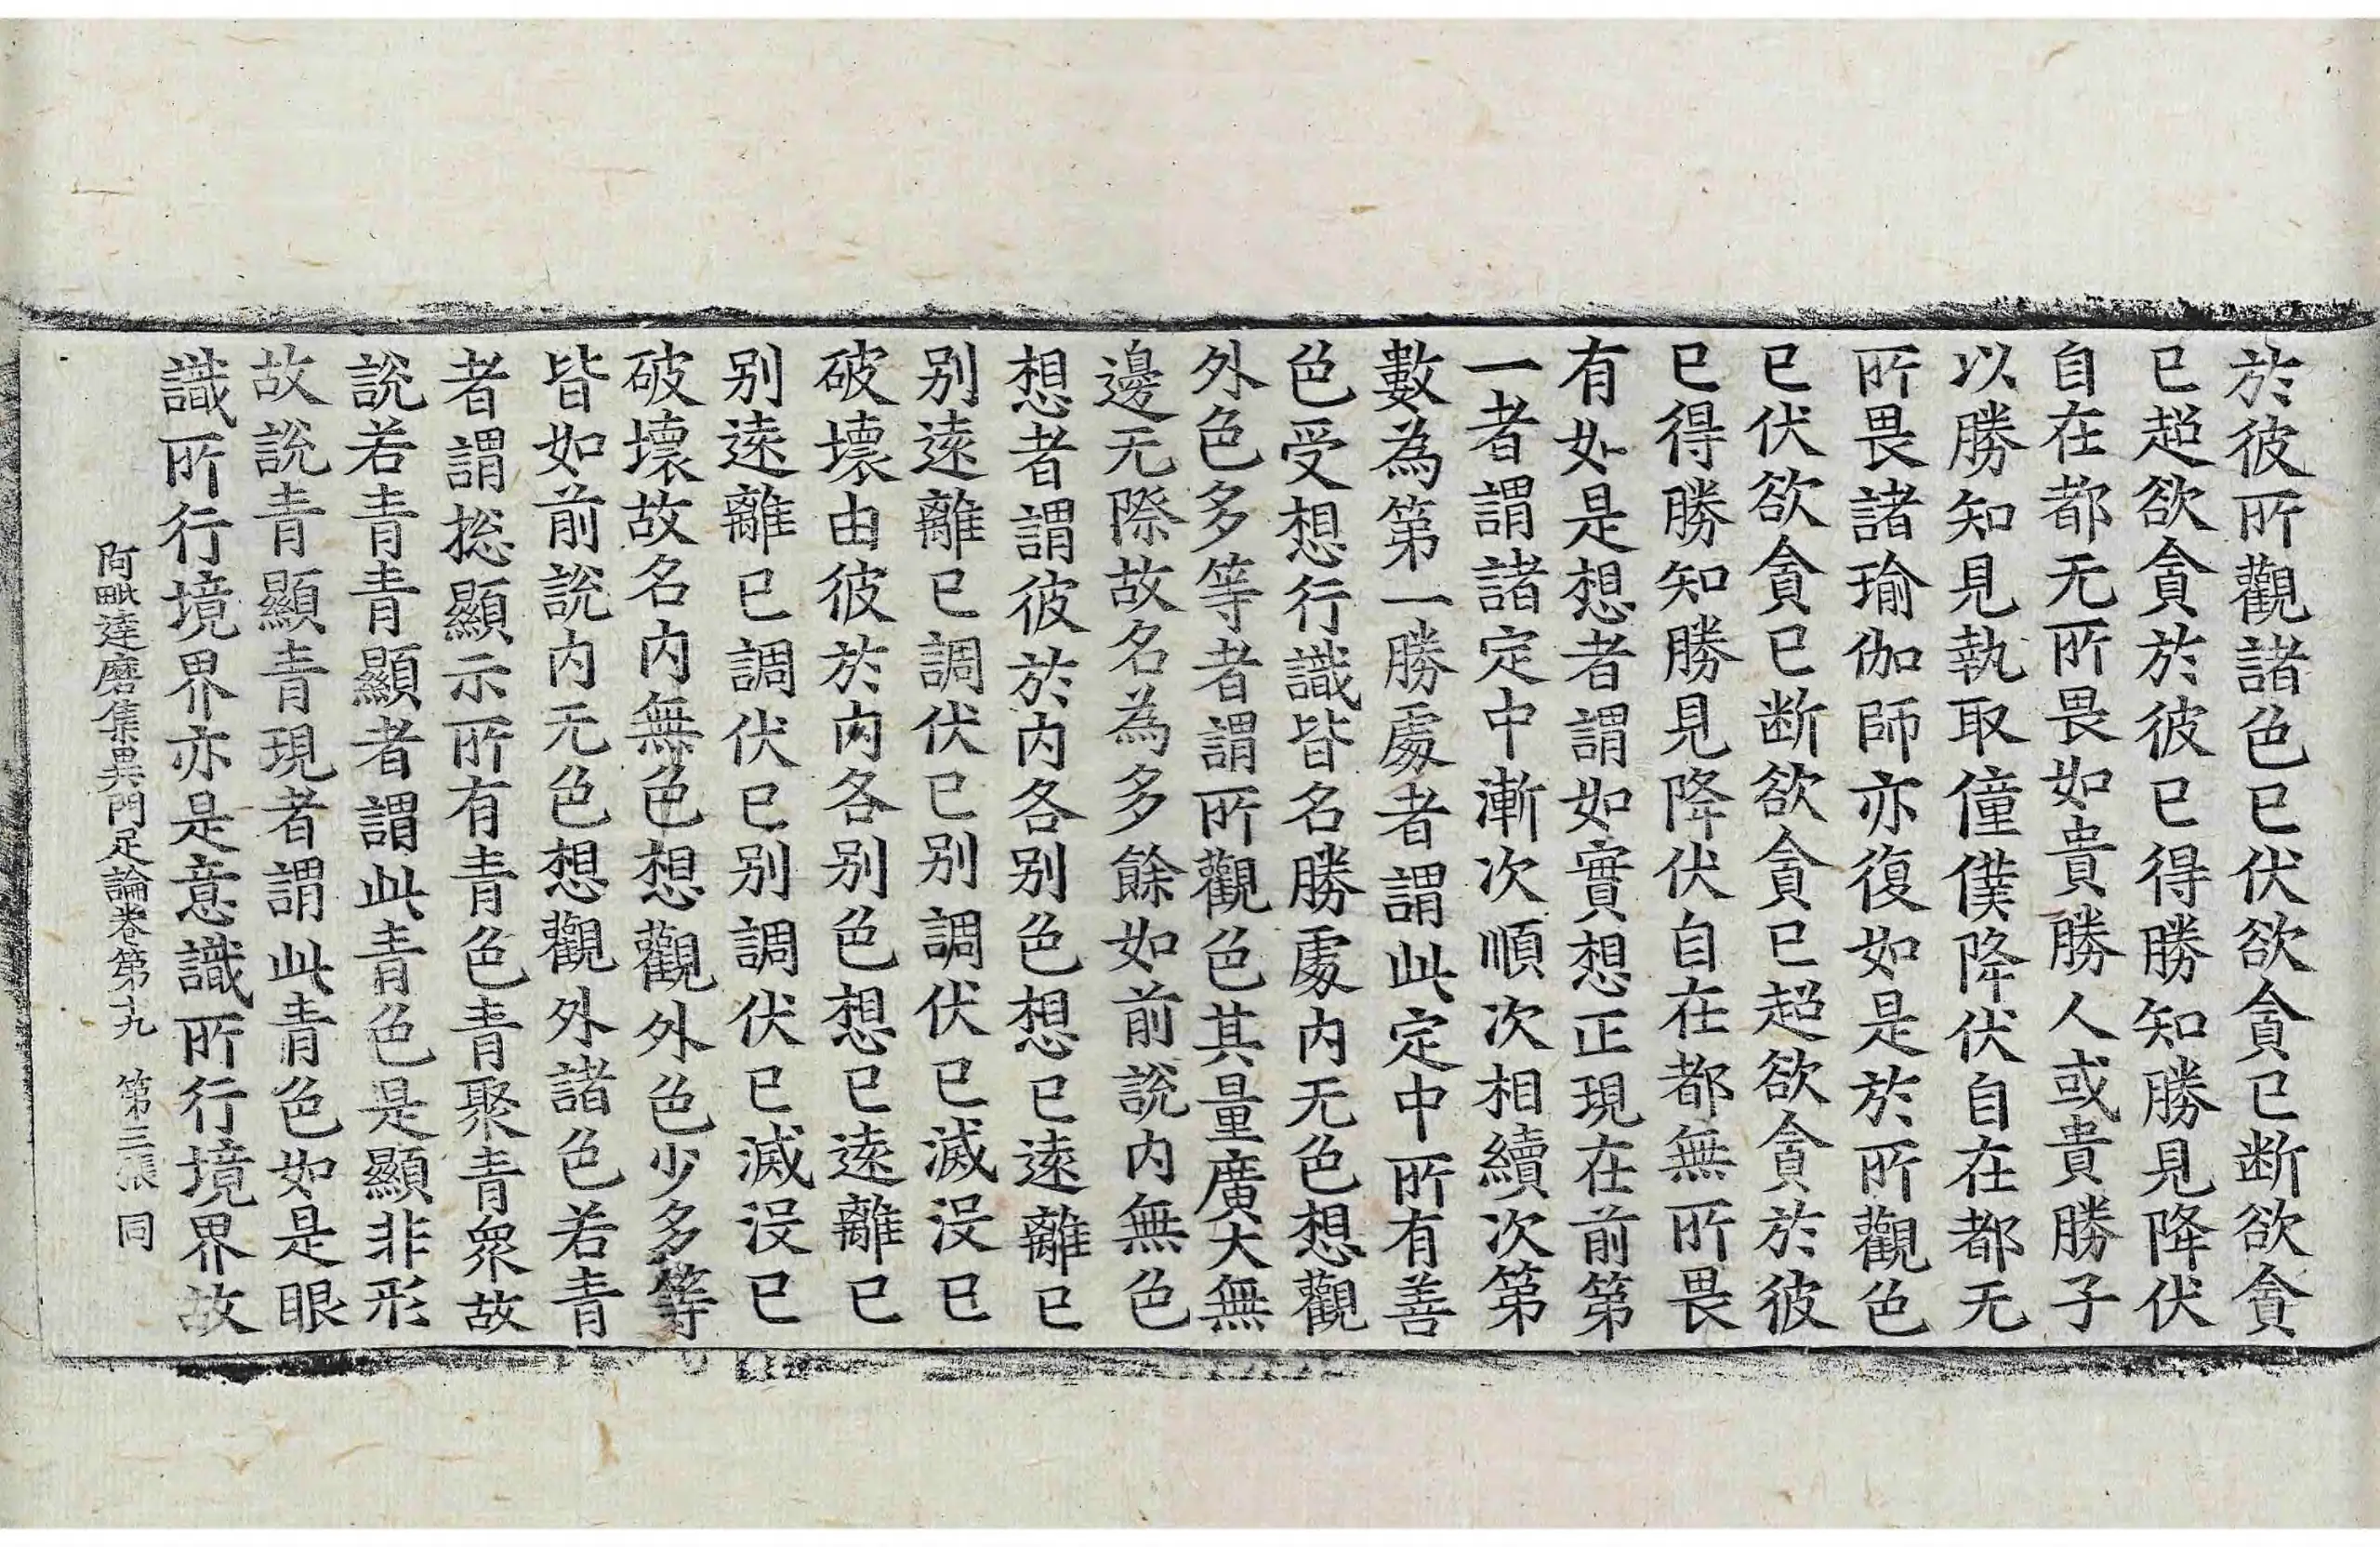 於彼所觀諸色已伏欲貪已断欲貪
已超欲貪於彼已得勝知勝見降伏
自在都无所畏如貴勝人或貴勝子
以勝知見執取僮僕降伏自在都无
所畏諸瑜伽師亦復如是於所觀色
已伏欲貪已断欲貪已超欲貪於彼
已得勝知勝見降伏自在都無所畏
有如是想者謂如實想正現在前第
一者謂諸定中漸次順次相續次第
數為第一勝處者謂此定中所有善
色受想行識皆名勝處内无色想觀
外色多等者謂所觀色其量廣大無
邊无際故名為多餘如前說内無色
想者謂彼於内各别色想已遠離已
别遠離已調伏已别調伏已滅沒已
破壞由彼於内各别色想已遠離已
别遠離已調伏已别調伏已滅沒已
破壞故名内無色想觀外色少多等
皆如前說内无色想觀外諸色若青
者謂捴顯示所有青色青聚青衆故
說若青青顯者謂此青色是顯非形
故說青顯青現者謂此青色如是眼
識所行境界亦是意識所行境界故
阿毗達磨集異門足論卷第十九　第三張　同